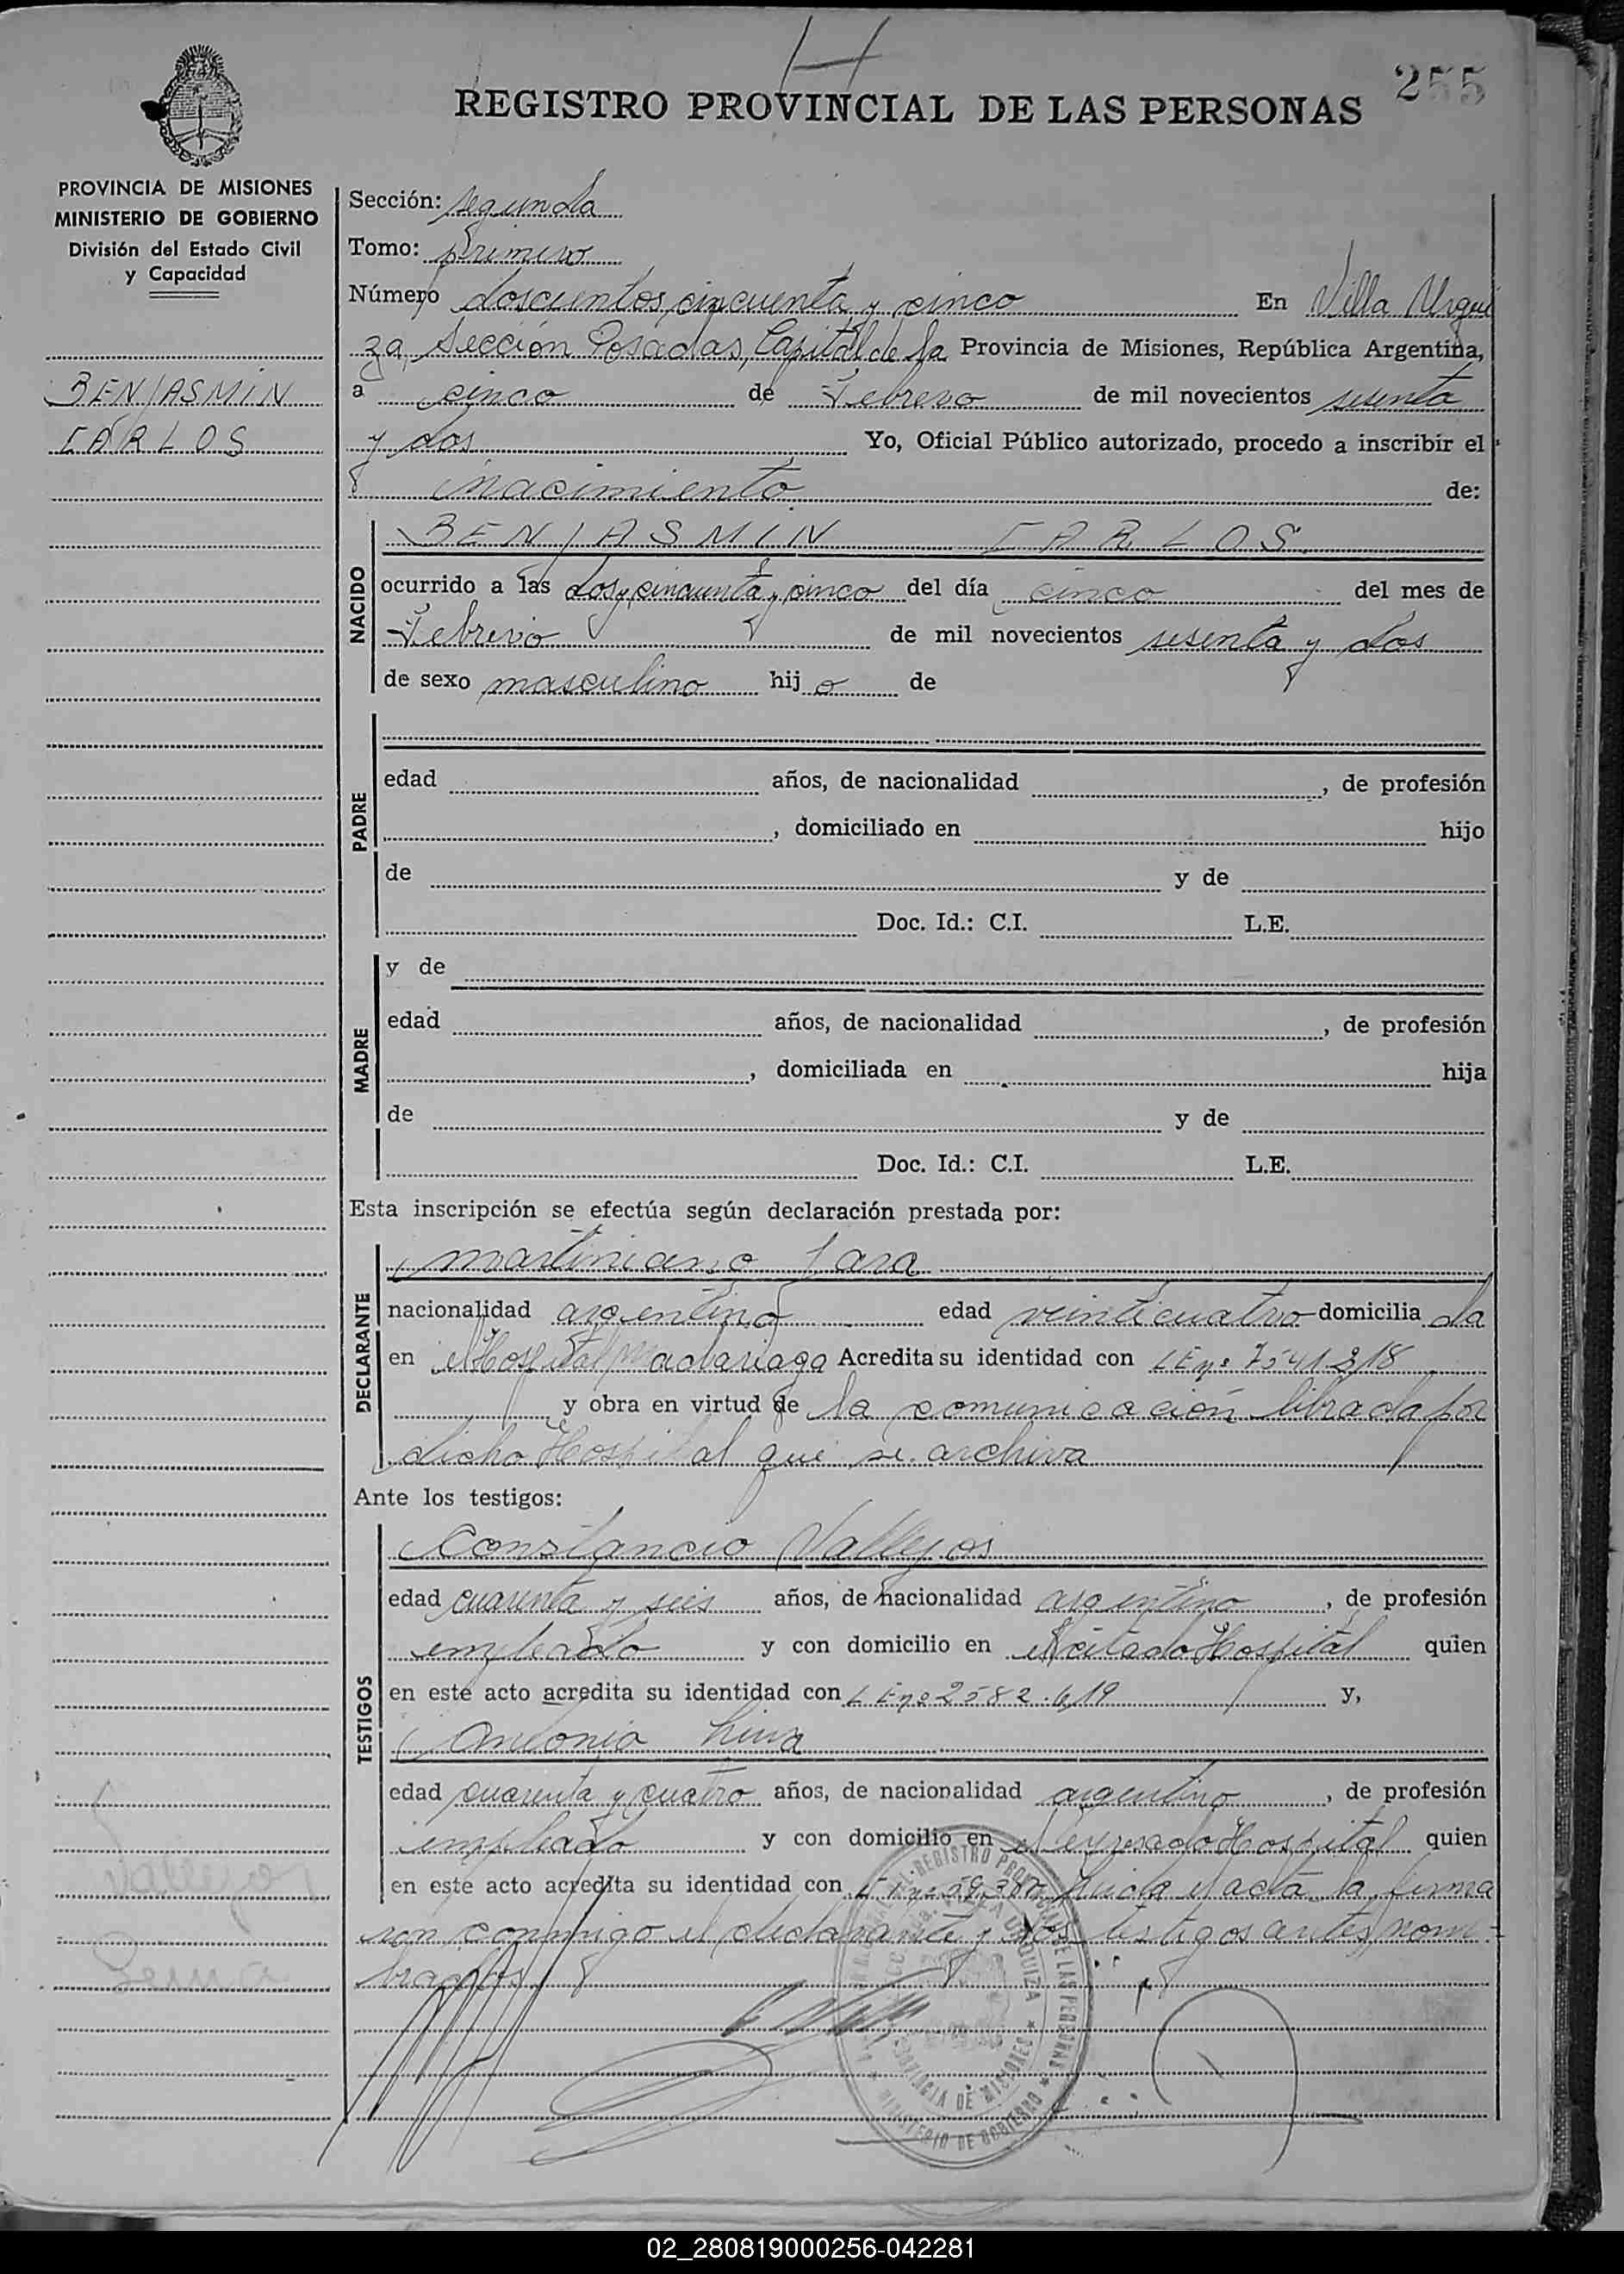 255
REGISTRO PROVINCIAL DE LAS PERSONAS
PROVINCIA DE MISIONES
MINISTERIO DE GOBIERNO
División del Estado Civil
y Capacidad
BENJASMIN
CARLOS
Sección: segunda
Tomo: primero
Número doscientos cincuenta y cinco En Villa Urqui
za, Sección Posadas, Capital de la Provincia de Misiones, República Argentina,
a cinco de Febrero de mil novecientos sesenta
y dos Yo, Oficial Público autorizado, procedo a inscribir el
nacimiento de:
NACIDO
BENJASMIN CARLOS
ocurrido a las dos y cincuenta y cinco del día cinco del mes de
Febrero de mil novecientos sesenta y dos
de sexo masculino hijo de
PADRE
edad años, de nacionalidad , de profesión
, domiciliado en hijo
de y de
Doc. Id.: C.I. L.E.
MADRE
y de
edad años, de nacionalidad , de profesión
, domiciliada en hija
de y de
Doc. Id.: C.I. L.E.
Esta inscripción se efectúa según declaración prestada por:
DECLARANTE
Martiniano Jara
nacionalidad argentino edad veinticuatro domicilia da
en el Hospital Madariaga Acredita su identidad con L E nº 7541218
y obra en virtud de la comunicación librada por
dicho Hospital que se archiva
Ante los testigos:
TESTIGOS
Constancio Vallejos
edad cuarenta y seis años, de nacionalidad argentino , de profesión
empleado y con domicilio en el citado Hospital quien
en este acto acredita su identidad con L E nº 2582.619 y,
Antonio
edad cuarenta y cuatro años, de nacionalidad argentino , de profesión
empleado y con domicilio en el expresado Hospital quien
en este acto acredita su identidad con leida el acta la firma
ron conmigo el declarante y los testigos antes nom-
brados
REGISTRO PROVINCIAL DE LAS PERSONAS
VILLA URQUIZA
PROVINCIA DE MISIONES
MINISTERIO DE GOBIERNO
02_280819000256-042281